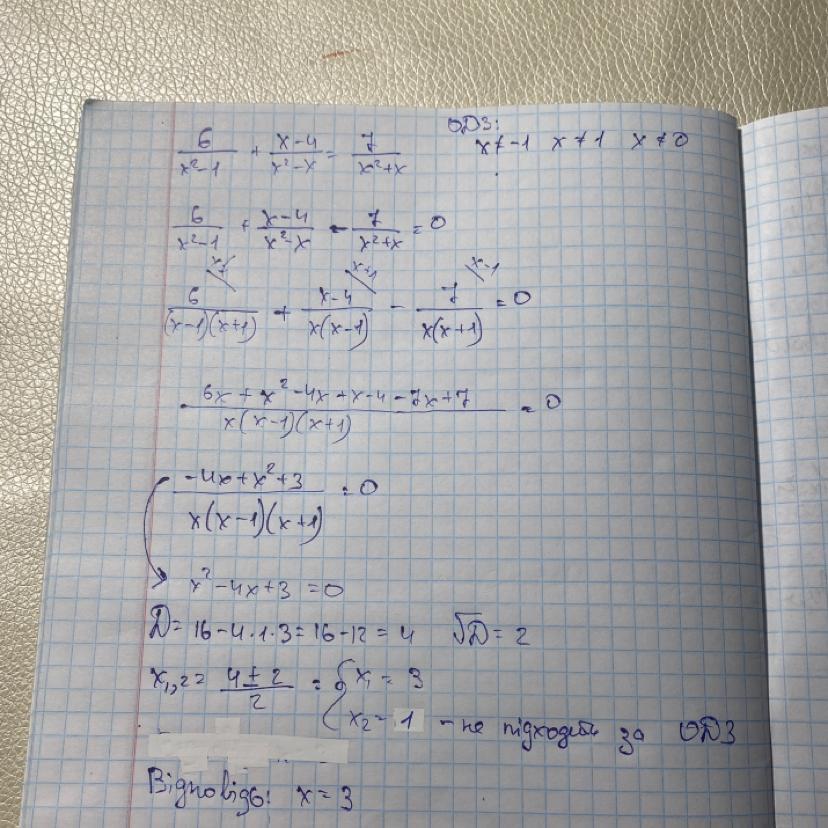 ОДЗ:
6/(x²-1) + (x-4)/(x²-x) = 7/(x²+x)   x ≠ -1   x ≠ 1   x ≠ 0
6/(x²-1) + (x-4)/(x²-x) - 7/(x²+x) = 0
x+1   x-1
6/((x-1)(x+1)) + (x-4)/(x(x-1)) - 7/(x(x+1)) = 0
(6x + x² - 4x + x - 4 - 7x + 7)/(x(x-1)(x+1)) = 0
(-4x + x² + 3)/(x(x-1)(x+1)) = 0
x² - 4x + 3 = 0
D = 16 - 4·1·3 = 16 - 12 = 4   √D = 2
x₁,₂ = (4 ± 2)/2 = { x₁ = 3
x₂ = 1 - не підходить за ОДЗ
Відповідь: x = 3